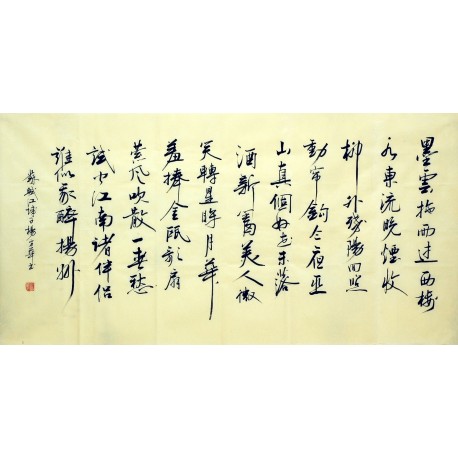 墨雲拖雨过西楼
水東流晚煙收
柳外殘陽回照
動帘鈎今夜巫
山真個好花未落
酒新篘美人微
笑轉星眸月華
羞捧金甌歌扇
萦风吹散一春愁
試问江南諸伴侣
誰似我醉揚州
蘇軾江神子楊華书